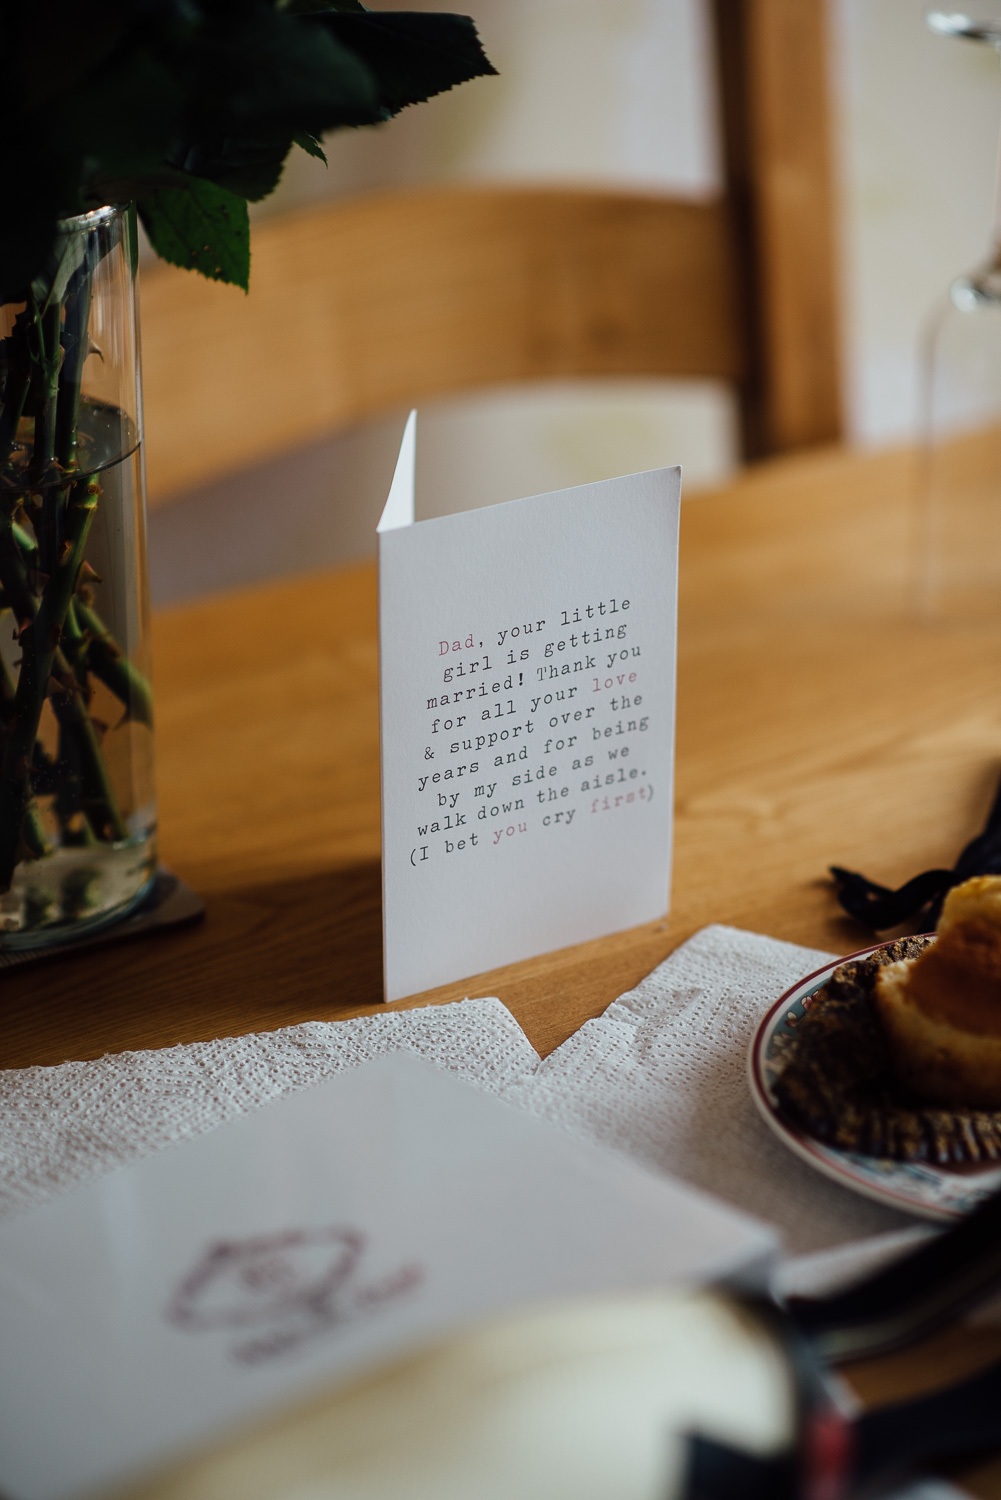 Dad, your little
girl is getting
married! Thank you
for all your love
& support over the
years and for being
by my side as we
walk down the aisle.
(I bet you cry first)